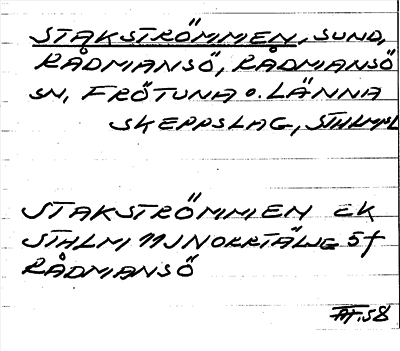 STAKSTRÖMMEN, SUND,
RÅDMANSÖ, RÅDMANSÖ
SN, FRÖTUNA o. LÄNNA
SKEPPSLAG, STHLMSL
STAKSTRÖMMEN EK
STHLM 11J NORRTÄLJE 5f
RÅDMANSÖ